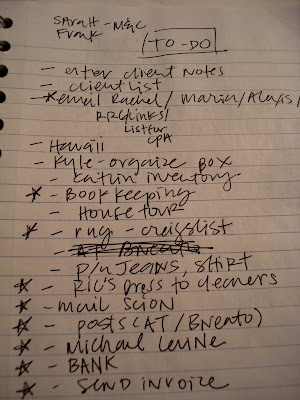 Sarah - Misc
Frank
TO-DO
- enter client notes
- client list
* email Rachel / Maria / Alexis /
RRG / Links /
List for
CPA
- Hawaii
- Kyle - organize box
- Caitlin inventory
* - Bookkeeping
- House tour
* - rug - craigslist
- P/U Jeans, shirt
* - Ric's press to cleaners
* - mail Scion
* - posts (AT / Bneato)
* - Michael Levine
* - BANK
* - send invoice